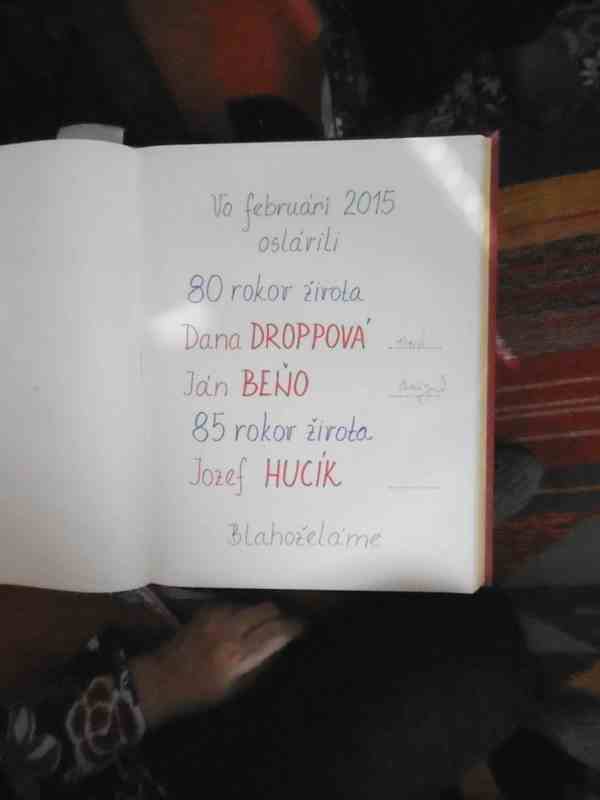 Vo februári 2015
oslávili
80 rokov života
Dana DROPPOVÁ
Ján BEŇO
85 rokov života
Jozef HUCÍK
Blahoželáme